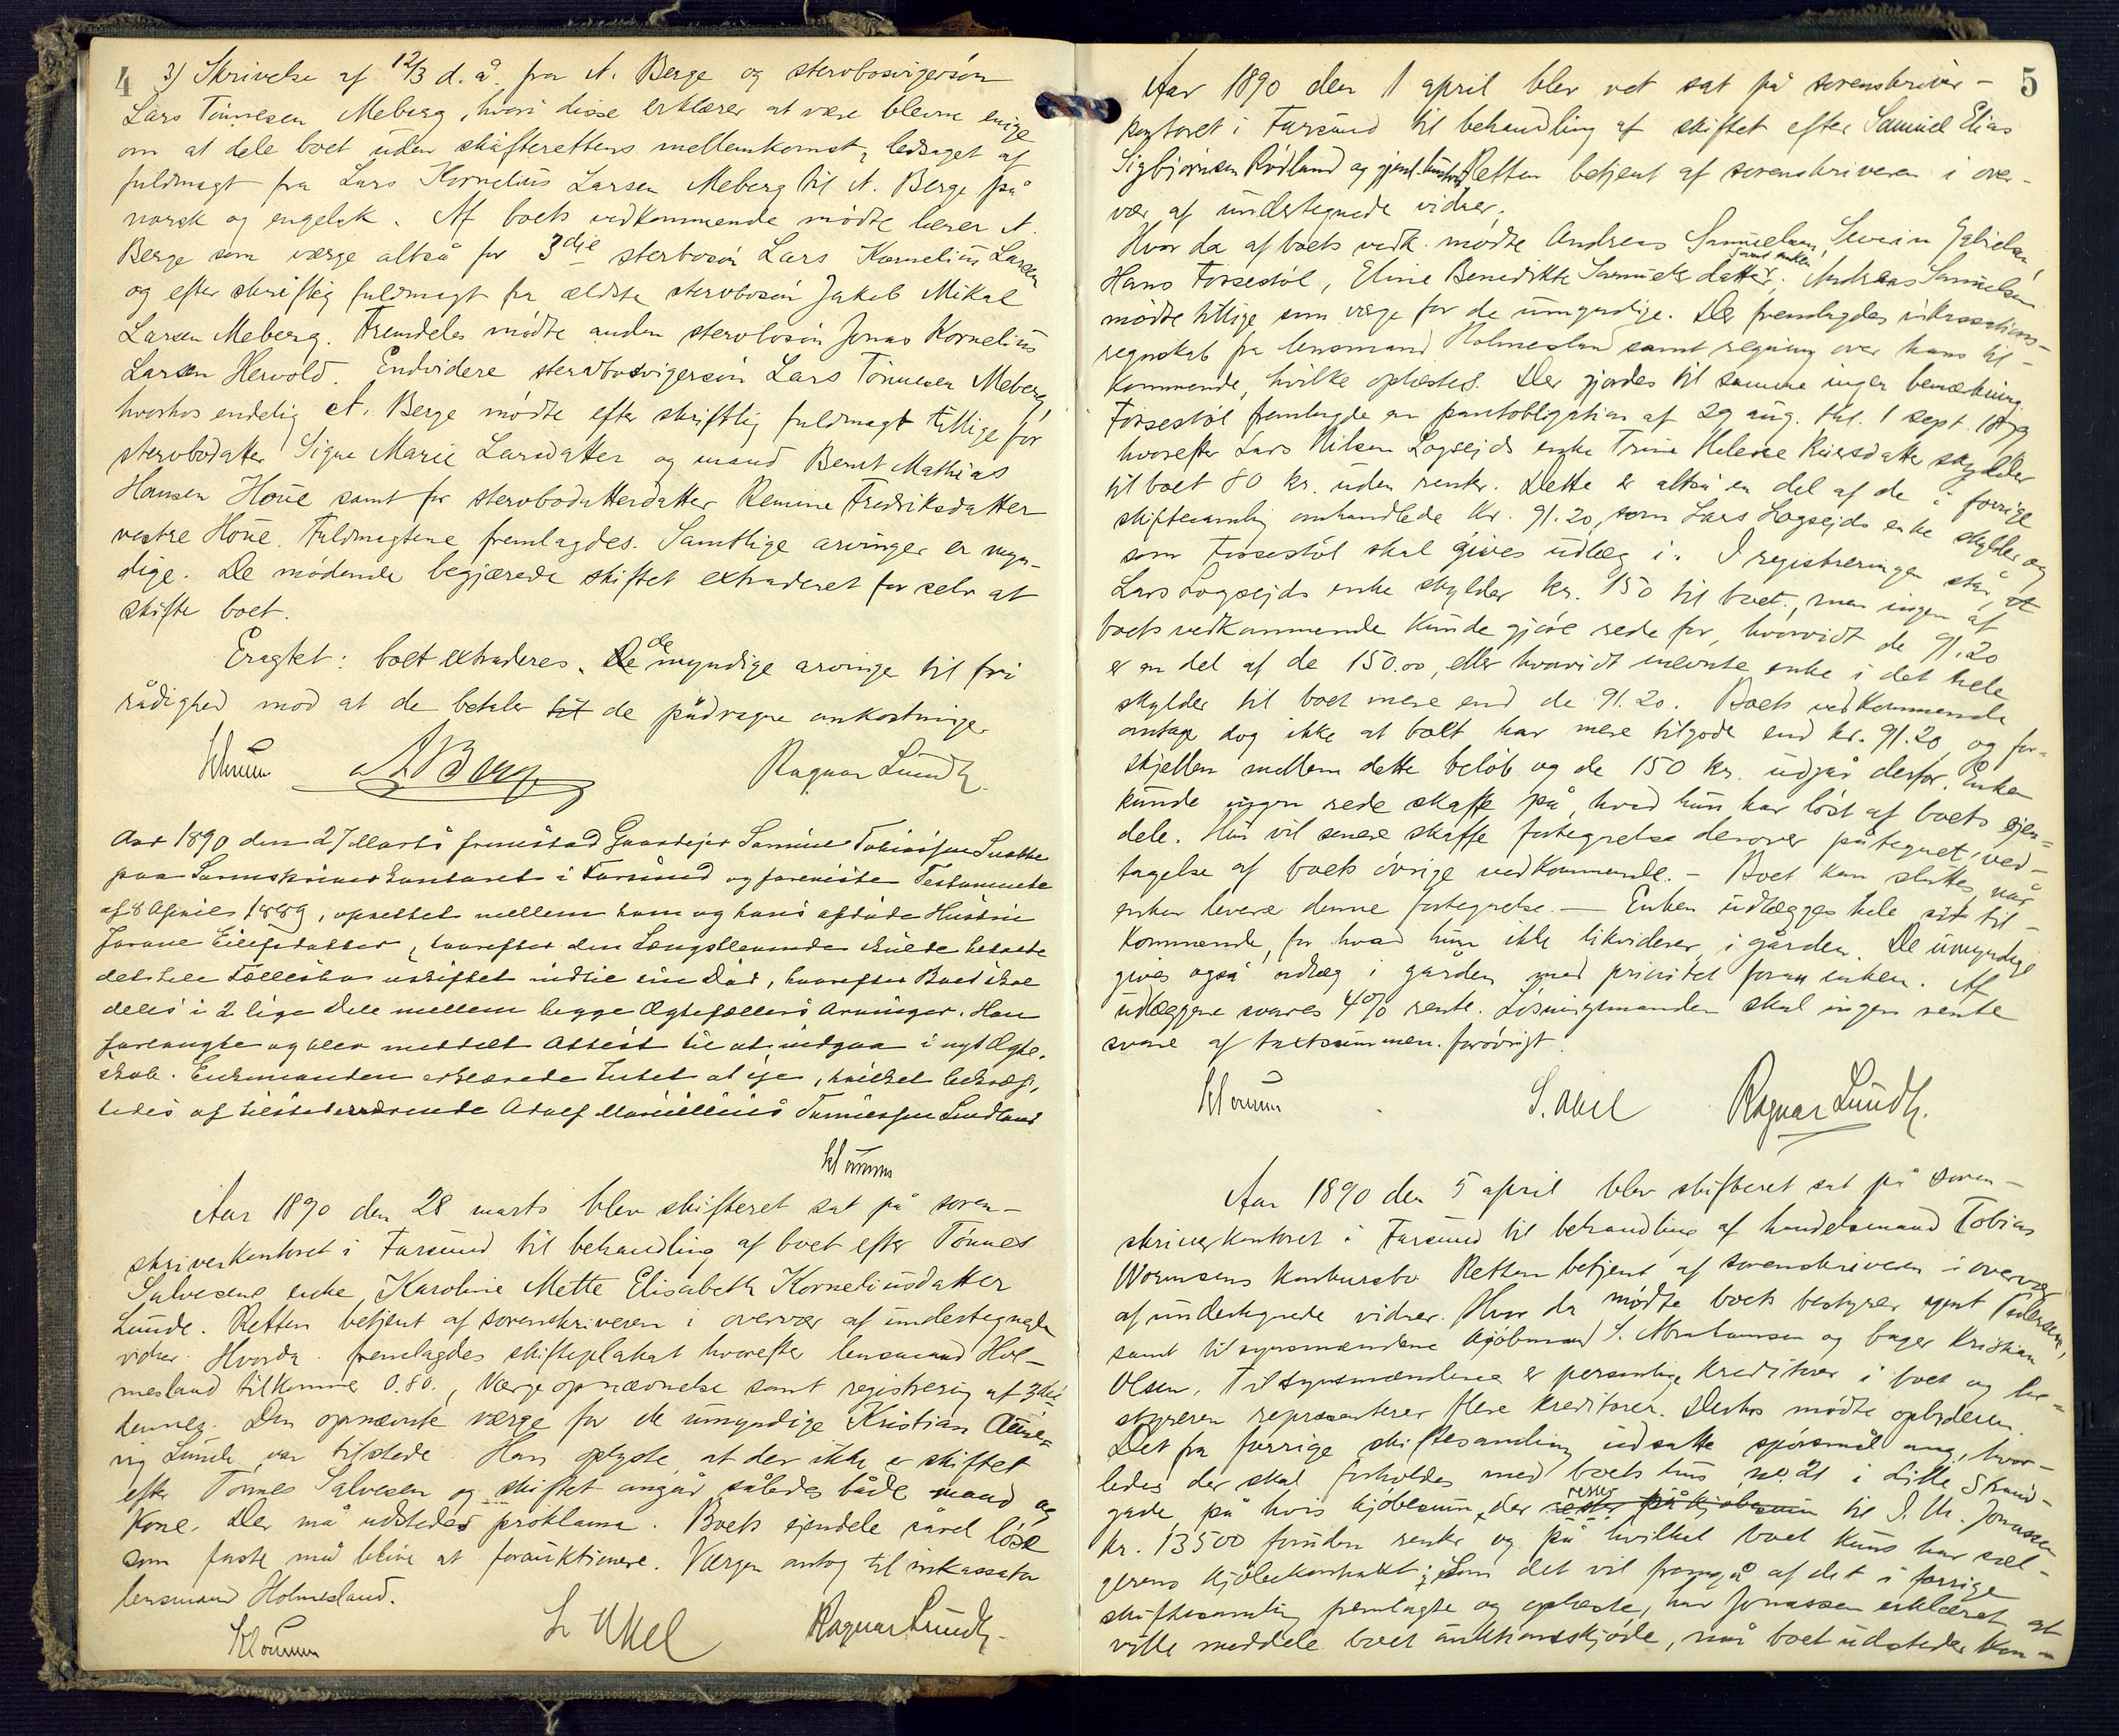 4
3) Skrivelse af 12/3 d. å. fra A. Berge og stervbosvigersön
Lars Tönnesen Meberg, hvori disse erklærer at være blevne enige
om at dele boet uden skifterettens mellemkomst, ledsaget af
fuldmagt fra Lars Kornelius Larsen Meberg til A. Berge på
norsk og engelsk. Af boets vedkommende mödte lærer A.
Berge som værge altså for 3die stervbosön Lars Kornelius Larsen
og efter skriftlig fuldmagt fra ældste stervbosön Jakob Mikal
Larsen Meberg. Fremdeles mödte anden stervbosön Jonas Kornelius
Larsen Hervold. Endvidere stervbosvigersön Lars Tönnesen Meberg,
hvorhos endelig A. Berge mödte efter skriftlig fuldmagt tillige for
stervbodatter Signe Marie Larsdatter og mand Bernt Mathias
Hansen Houe samt for stervbodatterdatter Remine Fredriksdatter
vestre Houe. Fuldmagtene fremlagdes. Samtlige arvinger er myn-
dige. De mödende begjærede skiftet extraderet for selv at
skifte boet.
Eragtet: boet extraderes de myndige arvinge til fri
rådighed mod at de betaler til de pådragne omkostninger
Klouman A Berge Ragnar Lundh.
Aar 1890 den 27 Marts fremstod Gaardejer Samuel Tobiassen
paa Sorenskriverkontoret i Farsund og foreviste Testamente
af 8 April 1889, oprettet mellem ham og hans afdöde Hustru
Jorane Eilefsdatter, hvorefter den Længstlevende skulde beholde
det hele Fællesbo uskiftet indtil sin Död, hvorefter Boet skal
deles i 2 lige Dele mellem begge Ægtefællers Arvinger. Han
forlangte og blev meddelt Attest til at indgaa i nyt Ægte-
skab. Enkemanden erklærede Intet at eje, hvilket bekræf-
tedes af tilstedeværende Adolf Tönnessen Lundland
Klouman
Aar 1890 den 28 marts blev skifteret sat på soren-
skriverkontoret i Farsund til behandling af boet efter Tönnes
Salvesens enke, Karoline Mette Elisabeth Korneliusdatter
Lunde. Retten betjent af sorenskriveren i overvær af undertegnede
vidner. Hvorda fremlagdes skifteplakat hvorefter lensmand Hol-
mesland tilkommer 0.80., værgeopnævnelse samt registrering af 3die
dennes. Den opnævnte værge for de umyndige Kristian
Lunde var tilstede. Han oplyste, at der ikke er skiftet
efter Tönnes Salvesen og skiftet angår således både mand og
kone. Der må udstedes proklama. Boets ejendele såvel löse
som faste må blive at forauktionere. Værgen antog til inkassator
lensmand Holmesland.
Klouman S. Abel Ragnar Lundh.
5
Aar 1890 den 1 april blev ret sat på sorenskriver-
kontoret i Farsund til behandling af skiftet efter Samuel Elias
Sigbjörnsen Rödland og gjenl. hustru. Retten betjent af sorenskriveren i over-
vær af undertegnede vidner.
Hvor da af boets vedk. mödte Andreas Samuelsen, Severin Gabrielsen,
Hans Forsestöl, Eline Benedikte Samuelsdatter, samt enken. Andreas Samuelsen
mödte tillige som værge for de umyndige. Der fremlagdes inkassations-
regnskab fra lensmand Holmesland samt regning over hans til-
kommende, hvilke oplæstes. Der gjordes til samme ingen bemærkning.
Forsestöl fremlagde en pantobligation af 29 aug. thl. 1 sept.
hvorefter Lars Nilsen Logsejds enke Trine Helene skylder
til boet 80 kr. uden renter. Dette er altså en del af de i forrige
skiftesamling omhandlede kr. 91.20, som Lars Logsejds enke skylder og
som Forsestöl skal gives udlæg i. I registreringen står, at
Lars Logsejds enke skylder kr. 150 til boet, men ingen af
boets vedkommende kunde gjöre rede for, hvorvidt de 91.20
er en del af de 150.00, eller hvorvidt nævnte enke i det hele
skylder til boet mere end de 91.20. Boets vedkommende
antager dog ikke at boet har mere tilgode end kr. 91.20, og for-
skjellen mellem dette belöb og de 150 kr. udgår derfor. Enken
kunde ingen rede skaffe på, hvad hun har löst af boets ejen-
dele. Hun vil senere skaffe fortegnelse derover påtegnet ved-
tagelse af boets övrige vedkommende. - Boet kan sluttes, når
enken leverer denne fortegnelse. — Enken udlægges hele sit til-
kommende, for hvad hun ikke likviderer, i gården. De umyndige
gives også udlæg i gården med prioritet foran enken. Af
udlæggene svares 4% rente. Lösningsmanden skal ingen rente
svare af taxtsummen. forövrigt.
Klouman S. Abel Ragnar Lundh.
Aar 1890 den 5 april blev skifteret sat på soren-
skriverkontoret i Farsund til behandling af handelsmand Tobias
Wormsens konkursbo. Retten betjent af sorenskriveren i overvær
af undertegnede vidner. Hvor da mödte boets bestyrer agent Pedersen,
samt tilsynsmændene kjöbmand S. Abrahamsen og bager Kristian
Olsen. Tilsynsmændene er personlige kreditorer i boet og be-
styreren repræsenterer flere kreditorer. Derhos mödte opbyderen.
Det fra forrige skiftesamling udsatte spörsmål ang., hvor-
ledes der skal forholdes med boets hus i Lille Strand-
gade, på hvis kjöbesum der rester til J. M. Jonassen
kr. 13500 foruden renter og på hvilket boet kuns har sæl-
gerens kjöbekontrakt; Som det vil fremgå af det i forrige
skiftesamling fremlagte og oplæste, har Jonassen erklæret at
ville meddele boet auktionsskjöde, når boet udsteder kon-